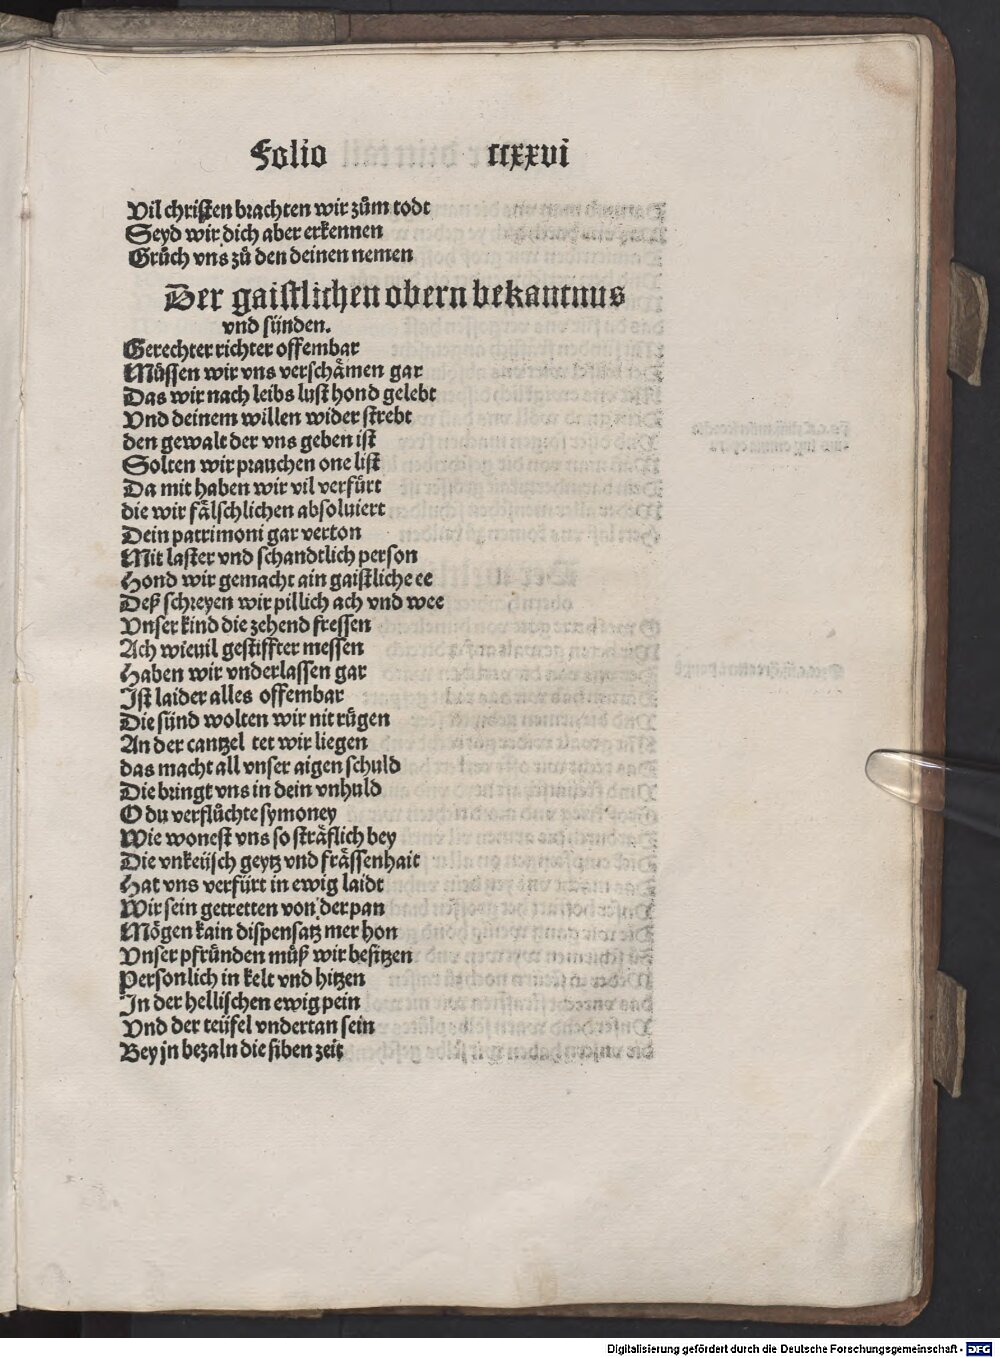 Folio ccxxvi
Vil christen brachten wir zům todt
Seyd wir dich aber erkennen
Grůch vns zů den deinen nemen
Der gaistlichen obern bekantnus
vnd sünden.
Gerechter richter offembar
Müssen wir vns verschämen gar
Das wir nach leibs lust hond gelebt
Vnd deinem willen wider strebt
den gewalt der vns geben ist
Solten wir prauchen one list
Da mit haben wir vil verfürt
die wir fälschlichen absoluiert
Dein patrimoni gar verton
Mit laster vnd schandtlich person
Hond wir gemacht ain gaistliche ee
Deß schreyen wir pillich ach vnd wee
Vnser kind die zehend fressen
Ach wieuil gestiffter messen
Haben wir vnderlassen gar
Ist laider alles offembar
Die sünd wolten wir nit rügen
An der cantzel tet wir liegen
das macht all vnser aigen schuld
Die bringt vns in dein vnhuld
O du verflůchte symoney
Wie wonest vns so sträflich bey
Die vnkeüsch geytz vnd frässenhait
Hat vns verfürt in ewig laidt
Wir sein getretten von der pan
Mögen kain dispensatz mer hon
Vnser pfründen můß wir besitzen
Personlich in kelt vnd hitzen
In der hellischen ewig pein
Vnd der teüfel vndertan sein
Bey jn bezaln die siben zeit
Digitalisierung gefördert durch die Deutsche Forschungsgemeinschaft - DFG